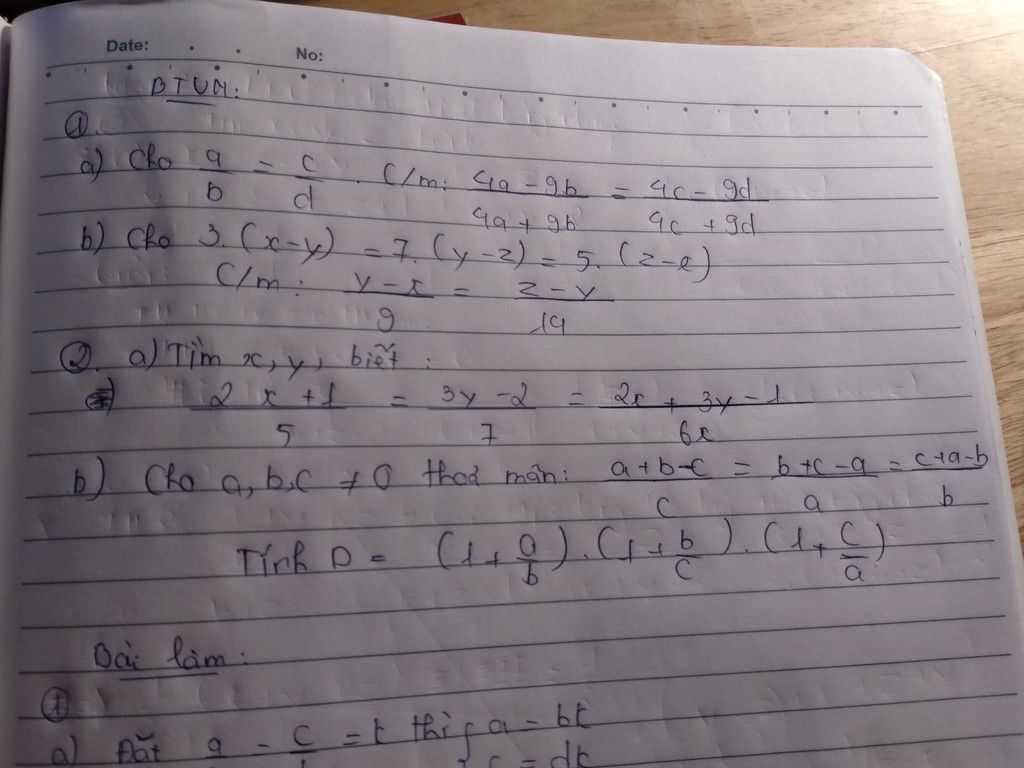 Date: No:
BTVN:
①.
a) Cho a/b = c/d. C/m: (4a - 9b)/(4a + 9b) = (4c - 9d)/(4c + 9d)
b) Cho 3.(x-y) = 7.(y-z) = 5.(z-e)
C/m: (y-x)/9 = (z-y)/19
②. a) Tìm x, y, biết:
(2x+1)/5 = (3y-2)/7 = (2x+3y-1)/6x
b) Cho a, b, c ≠ 0 thoả mãn: (a+b-c)/c = (b+c-a)/a = (c+a-b)/b
Tính D = (1+a/b).(1+b/c).(1+c/a)
Bài làm:
①
a) Đặt = t thì { a = bt
c = dt